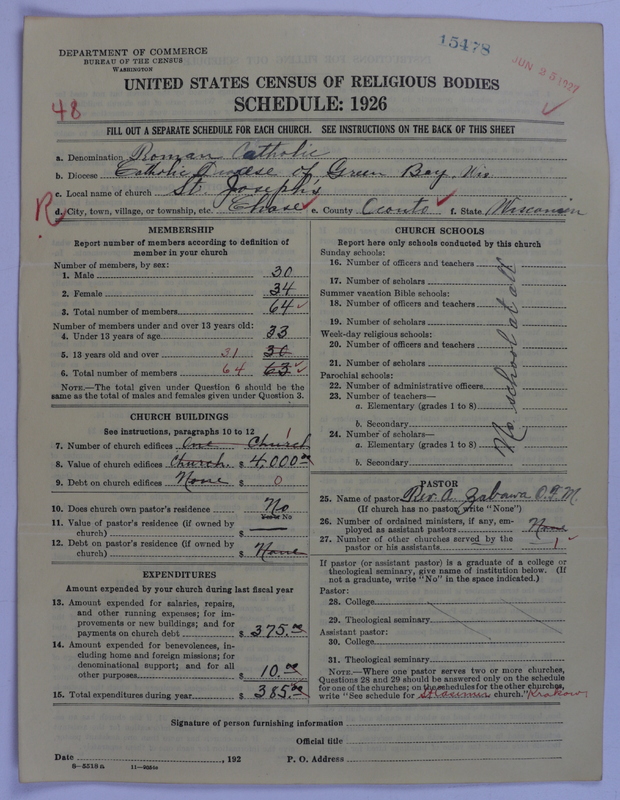 15478
JUN 25 1927
DEPARTMENT OF COMMERCE
BUREAU OF THE CENSUS
WASHINGTON
UNITED STATES CENSUS OF RELIGIOUS BODIES
SCHEDULE: 1926
48
FILL OUT A SEPARATE SCHEDULE FOR EACH CHURCH. SEE INSTRUCTIONS ON THE BACK OF THIS SHEET
a. Denomination Roman Catholic
b. Diocese Catholic Diocese of Green Bay, Wis
c. Local name of church St. Josephs
R d. City, town, village, or township, etc. Chase e. County Oconto f. State Wisconsin
MEMBERSHIP
Report number of members according to definition of
member in your church
Number of members, by sex:
1. Male 30
2. Female 34
3. Total number of members 64
Number of members under and over 13 years old:
4. Under 13 years of age 33
5. 13 years old and over 31 30
6. Total number of members 64 63
NOTE.—The total given under Question 6 should be the
same as the total of males and females given under Question 3.
CHURCH BUILDINGS
See instructions, paragraphs 10 to 12
7. Number of church edifices One Church 1
8. Value of church edifices Church. $ 4,000.00
9. Debt on church edifices None $ 0
10. Does church own pastor's residence No
Yes or No
11. Value of pastor's residence (if owned by
church) $ —
12. Debt on pastor's residence (if owned by
church) $ None
EXPENDITURES
Amount expended by your church during last fiscal year
13. Amount expended for salaries, repairs,
and other running expenses; for im-
provements or new buildings; and for
payments on church debt $ 375.00
14. Amount expended for benevolences, in-
cluding home and foreign missions; for
denominational support; and for all
other purposes $ 10.00
15. Total expenditures during year $ 385.00
CHURCH SCHOOLS
Report here only schools conducted by this church
Sunday schools:
16. Number of officers and teachers
17. Number of scholars
Summer vacation Bible schools:
18. Number of officers and teachers
19. Number of scholars
Week-day religious schools:
20. Number of officers and teachers
21. Number of scholars
Parochial schools:
22. Number of administrative officers
23. Number of teachers—
a. Elementary (grades 1 to 8)
b. Secondary
24. Number of scholars—
a. Elementary (grades 1 to 8)
b. Secondary
No school at all
PASTOR
25. Name of pastor Rev. A. Zabawa O.F.M.
(If church has no pastor, write "None")
26. Number of ordained ministers, if any, em-
ployed as assistant pastors None
27. Number of other churches served by the
pastor or his assistants 1
If pastor (or assistant pastor) is a graduate of a college or
theological seminary, give name of institution below. (If
not a graduate, write "No" in the space indicated.)
Pastor:
28. College
29. Theological seminary
Assistant pastor:
30. College
31. Theological seminary
NOTE.—Where one pastor serves two or more churches,
Questions 28 and 29 should be answered only on the schedule
for one of the churches; on the schedules for the other churches,
write "See schedule for St Casimir church." Krakow
Signature of person furnishing information
Official title
Date , 192 P. O. Address
8—5218a 11—9084